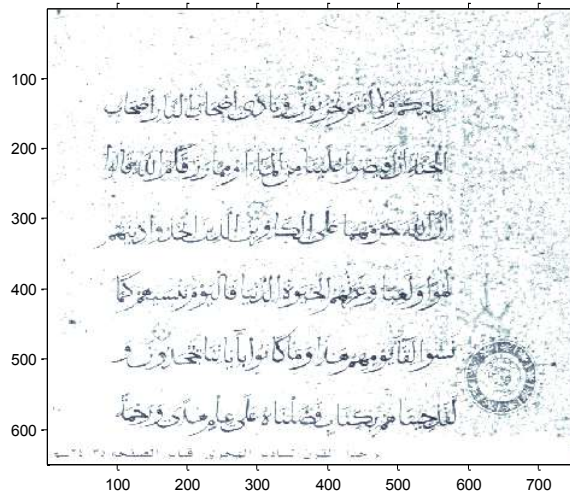 100
200
300
400
500
600
عليكم ولا أنتم تحزنون ونادى أصحاب النار أصحاب
الجنة أن أفيضوا علينا من الماء أو مما رزقكم الله قالوا
إن الله حرمهما على الكافرين الذين اتخذوا دينهم
لهوا ولعبا وغرتهم الحيوة الدنيا فاليوم ننسيهم كما
نسوا لقاء يومهم هذا وما كانوا بآياتنا يجحدون و
لقد جئناهم بكتاب فصلناه على علم هدى ورحمة
القرن السادس الهجري قياس الصفحة
100 200 300 400 500 600 700